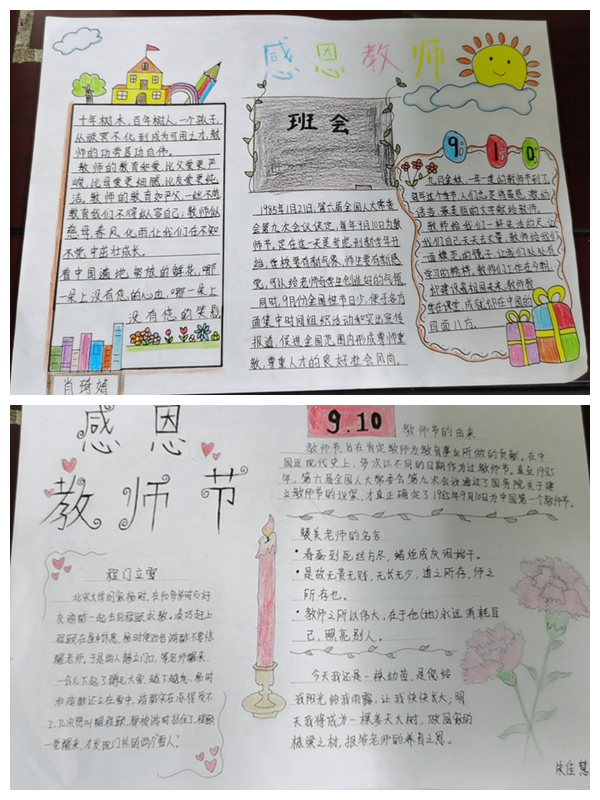 感恩教师
班会
9.10
十年树木,百年树人,一个孩子
从顽冥不化到成为可用之才,教
师的功劳居功自伟。
教师的教育如爱,比父爱更严
峻,比母爱更细腻,比友爱更纯
洁。教师的教育如
教育我们不得纵容自己;教师似
慈母春风化雨让我们在不知
不觉中茁壮成长。
看中国遍地努放的鲜花,哪
一朵上没有您的心血,哪一朵上
没有您的笑
肖琦婧
1985年1月21日,第六届全国人大常委
会第九次会议决定,每年9月10日为教
师节。定在这一天是考虑到新学年开
始,学校要有新气象,师生要有新感
觉,可以给老师教学生创造好的气氛。
同时,9月份全国性节日少,便于各方
面集中时间组织活动和突出宣传
报道,促进全国范围内形成尊师重
教,尊重人才的良好社会风尚。
九月金秋,一年一度的教师节到了,
每年这个季节人们总是将最感激的
话语,最美丽的文字献给教师。
教师给我们一杆生活的尺,让
我们自己天天去丈量,教师给我们
一面模范的镜子,让我们处处有
学习的榜样,教师们工作在今朝,
却建设着祖国未来,教师教
学在课堂,成就却在中国的
四面八方。
感恩
教师节
9.10
教师节的由来
教师节,旨在肯定教师为教育事业所做的贡献。在中
国近现代史上,多次以不同的日期作为过教师节。直至1985
年,第六届全国人大常委会第九次会议通过了国务院关于建
立教师节的议案,才真正确定了1985年9月10日为中国第一个教师节。
赞美老师的名言
·春蚕到死丝方尽,蜡炬成灰泪始干。
·是故无贵无贱,无长无少,道之所存,师之
所存也。
·教师之所以伟大,在于他(她)永远消耗自
己,照亮别人。
今天我还是一棵幼苗,是您给
我阳光给我雨露,让我快快长大;明
天我将成为一棵参天大树,做国家的
栋梁之材,报答老师的养育之恩。
朱佳慧
程门立雪
北宋大学问家杨时,在和好
友游酢一起去向程颐求教。凑巧赶上
程颐在屋中休息,杨时便劝告游酢不要惊
醒老师。于是两人静立门口,等老师醒来。
一会儿下起了鹅毛大雪,越下越急,杨时
和游酢还立在雪中,游酢实在冻得受不
了,几次想叫醒程颐,都被杨时拦住了,程颐
一觉醒来,才发现门外的两个"雪人"